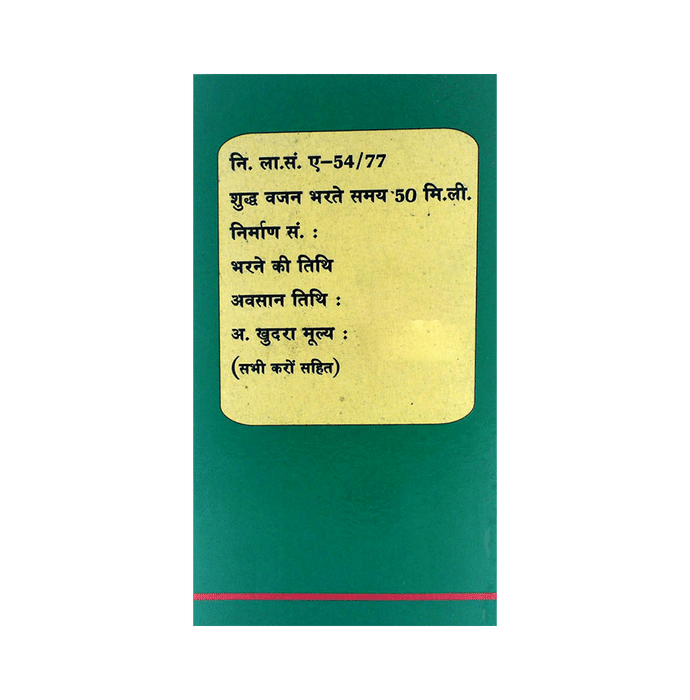 नि. ला.सं. ए–54/77
शुद्ध वजन भरते समय 50 मि.ली.
निर्माण सं. :
भरने की तिथि
अवसान तिथि :
अ. खुदरा मूल्य :
(सभी करों सहित)